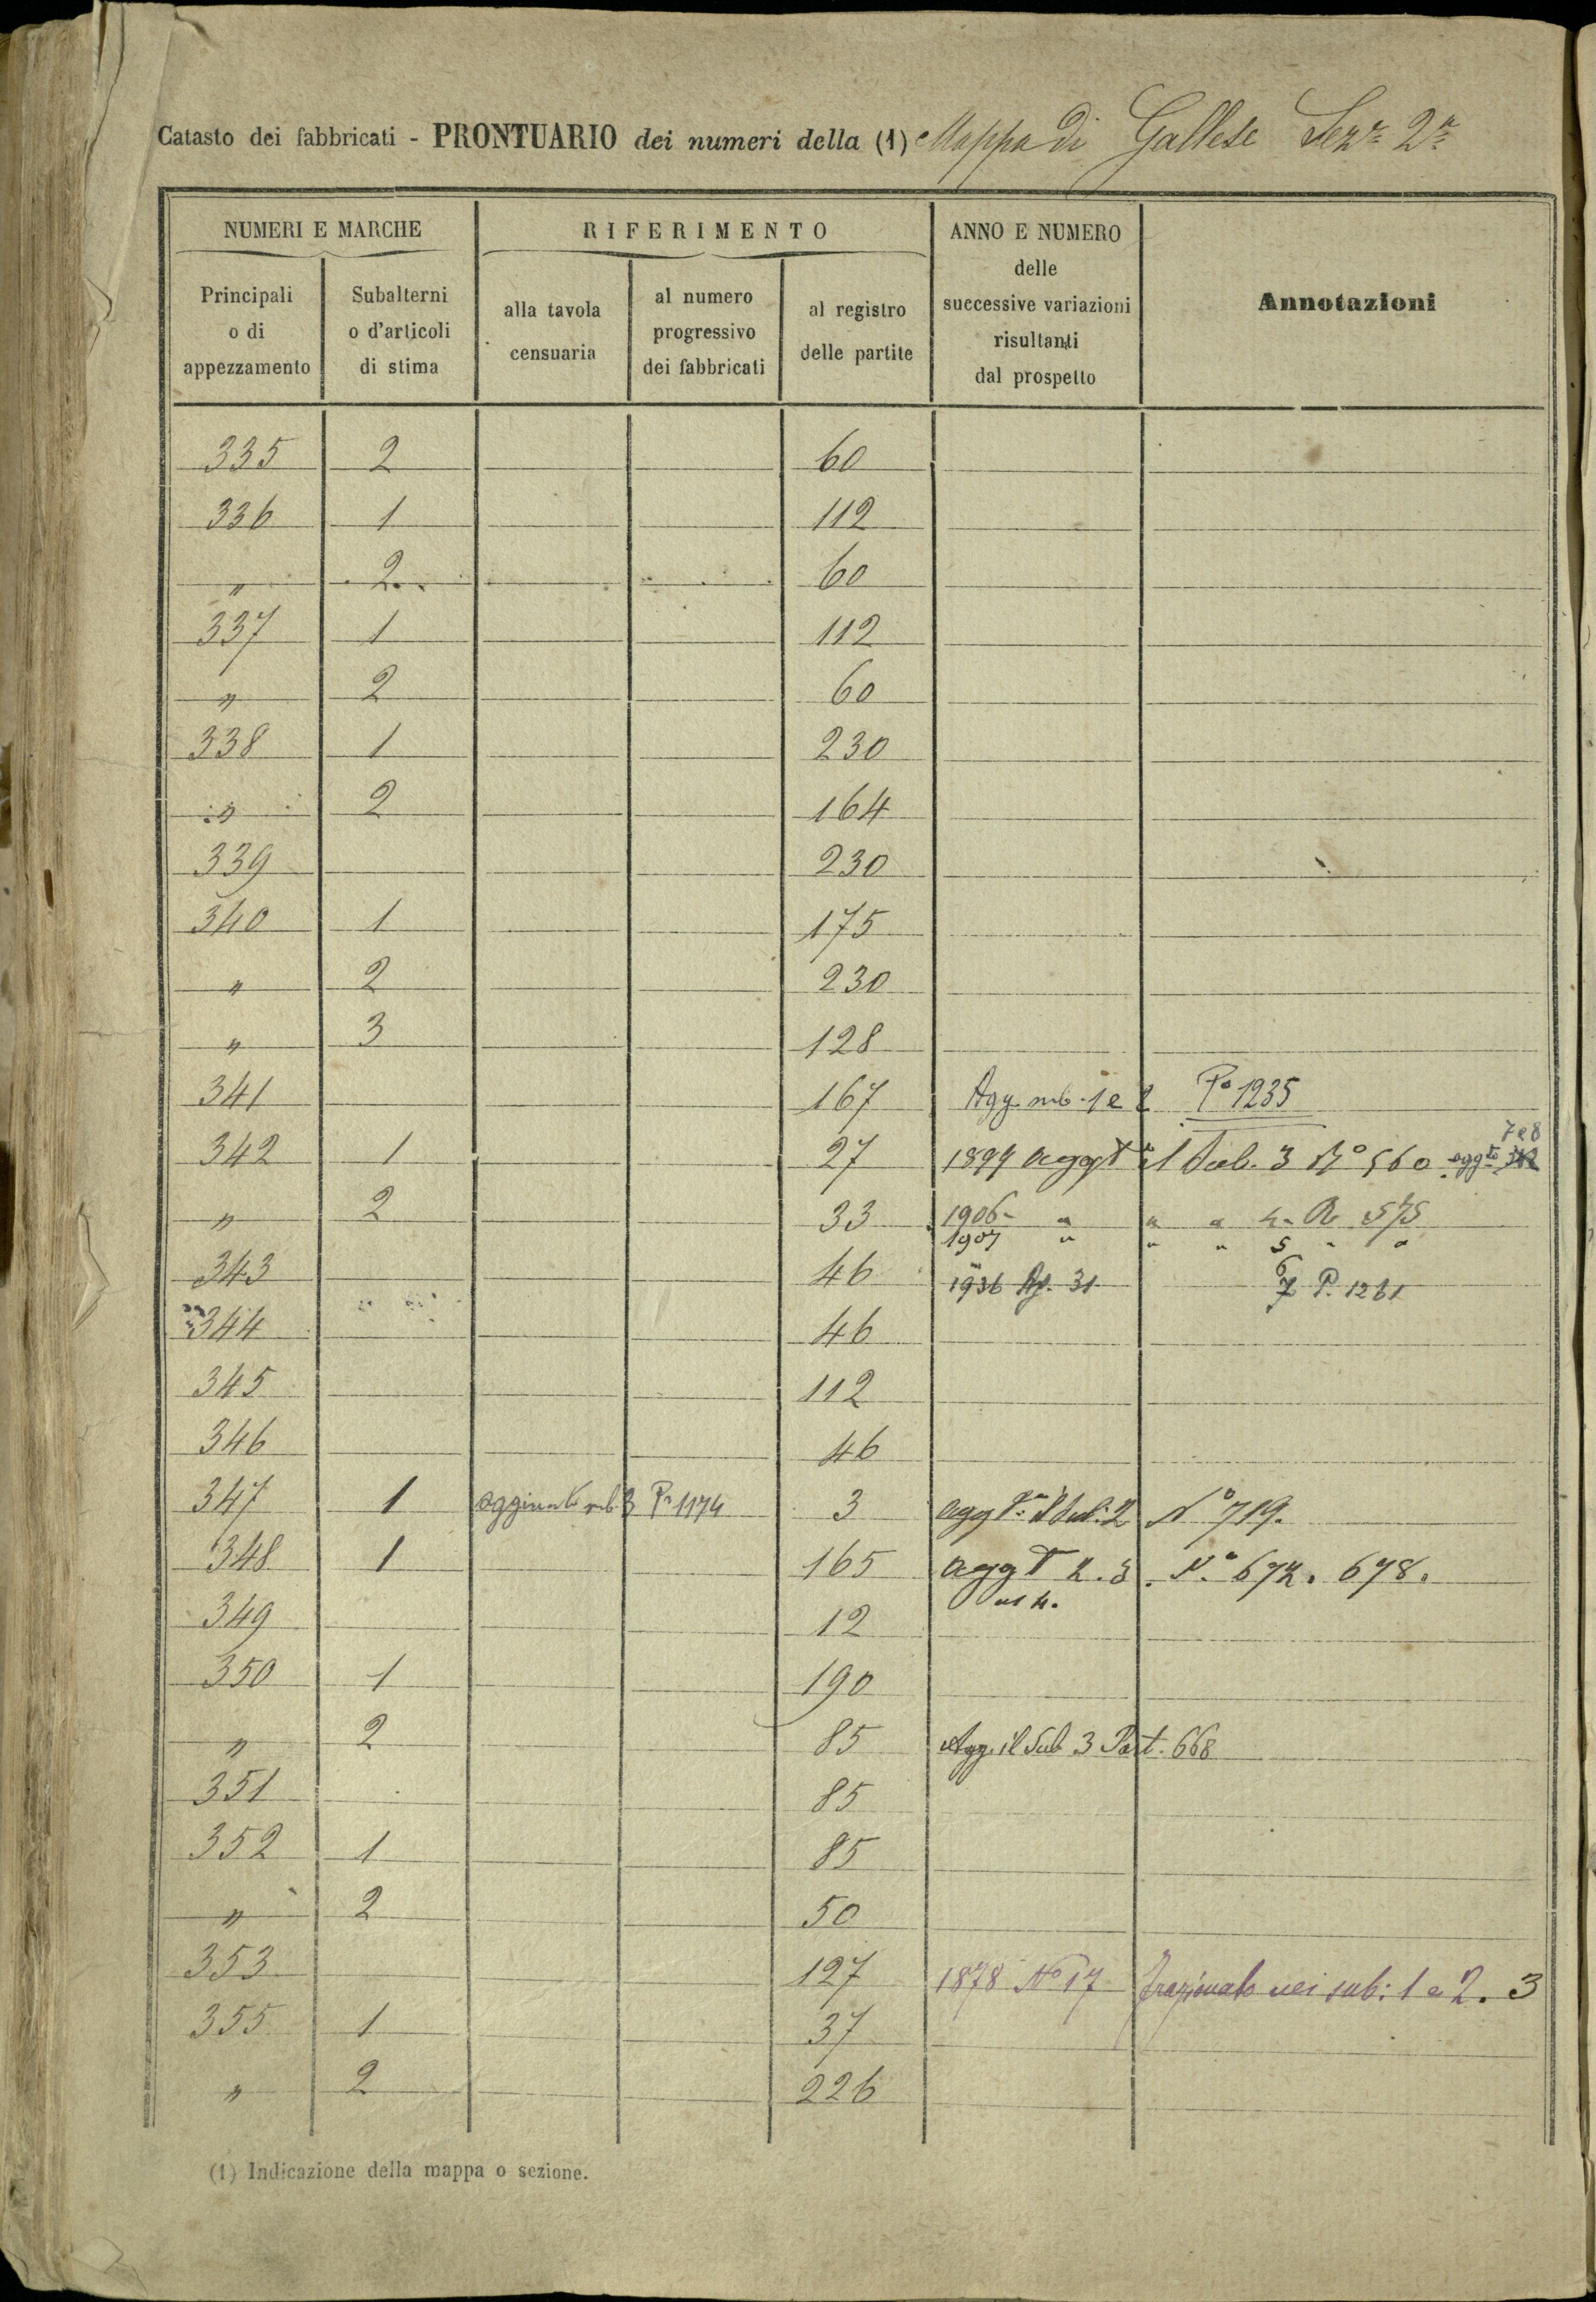 Catasto dei fabbricati - PRONTUARIO dei numeri della (1) Mappa di Gallese Sez.e 2a
NUMERI E MARCHE
RIFERIMENTO
ANNO E NUMERO
delle
successive variazioni
risultanti
dal prospetto
Annotazioni
Principali
o di
appezzamento
Subalterni
o d'articoli
di stima
alla tavola
censuaria
al numero
progressivo
dei fabbricati
al registro
delle partite
335 2 60
336 1 112
" 2 60
337 1 112
" 2 60
338 1 230
" 2 164
339 230
340 1 175
" 2 230
" 3 128
341 167 Agg. sub. 1 e 2 Pa 1235
7 e 8
342 1 27 1899 aggto il Sub. 3 No 560 aggto
" 2 33 1906 " " " 4. 575
1907 " " " 5 " "
343 46 6
1936 31 7 P. 1261
344 46
345 112
346 46
347 1 aggiunto sub. 3 Pa 1174 3 aggto il Sub. 2 No 719.
348 1 165 aggto 2. 3. No 672. 678.
4.
349 12
350 1 190
" 2 85 Agg. il Sub 3 Part. 668
351 85
352 1 85
" 2 50
353 127 1878 No 17 frazionato nei sub: 1 e 2. 3
355 1 37
" 2 226
(1) Indicazione della mappa o sezione.